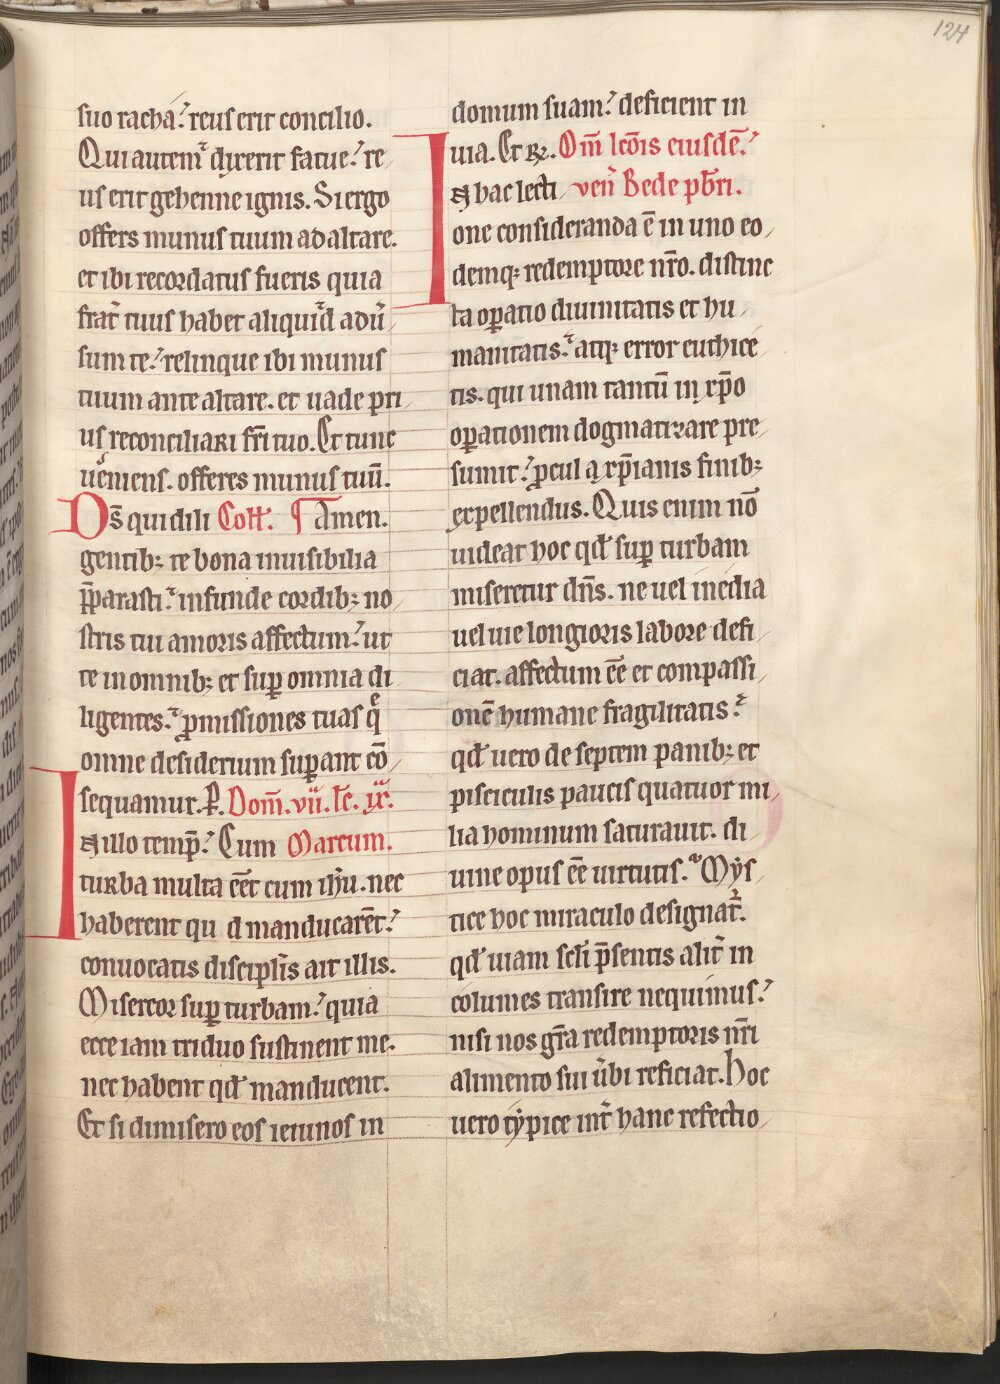 124
suo racha? reus erit concilio.
Qui autem dixerit fatue? re
us erit gehenne ignis. Si ergo
offers munus tuum ad altare.
et ibi recordatus fueris quia
frat̄ tuus habet aliquid adū
sum te? relinque ibi munus
tuum ante altare. et uade pri
us reconciliari fr̄i tuo. Et tunc
ueniens. offeres munus tuū.
Ds̄ qui dili Coll. ¶ Amen.
gentib; te bona inuisibilia
p̄parasti. infunde cordib; no
stris tui amoris affectum? ut
te in omnib; et sup̱ omnia di
ligentes. ꝓmissiones tuas q̄
omne desiderium sup̱ant cō
sequamur. P. Dom̄. vii. sc̄. ix.
N illo temp̄? Cum Marcum.
turba multa eēt cum ih̄u. nec
haberent qu d manducarēt?
conuocatis disciplīs ait illis.
Misereor sup̱ turbam? quia
ecce iam triduo sustinent me.
nec habent qd̄ manducent.
Et si dimisero eos ieiunos in
domum suam? deficient in
uia. Et R̄. Om̄ lc̄ōis eiusdē?
N hac lecti ven̄ Bede pb̄ri.
one consideranda ē in uno eo
demq; redemptore nr̄o. distinc
ta oꝑatio diuinitatis et hu
manitatis. atq; error euthice
tis. qui unam tantū in xp̄o
oꝑationem dogmatizare pre
sumit? ꝓcul a xp̄ianis finib;
expellendus. Quis enim nō
uideat hoc qd̄ sup̱ turbam
miseretur dn̄s. ne uel inedia
uel uie longioris labore defi
ciat. affectum eē et compassi
onē humane fragilitatis?
qd̄ uero de septem panib; et
pisciculis paucis quatuor mi
lia hominum saturauit. di
uine opus eē uirtutis. Mẏs
tice hoc miraculo designat̄.
qd̄ uiam sc̄li p̄sentis alit̄ in
columes transire nequimus?
nisi nos gr̄a redemptoris nr̄i
alimento sui u̇bi reficiat. Hoc
uero tẏpice int̄ hanc refectio